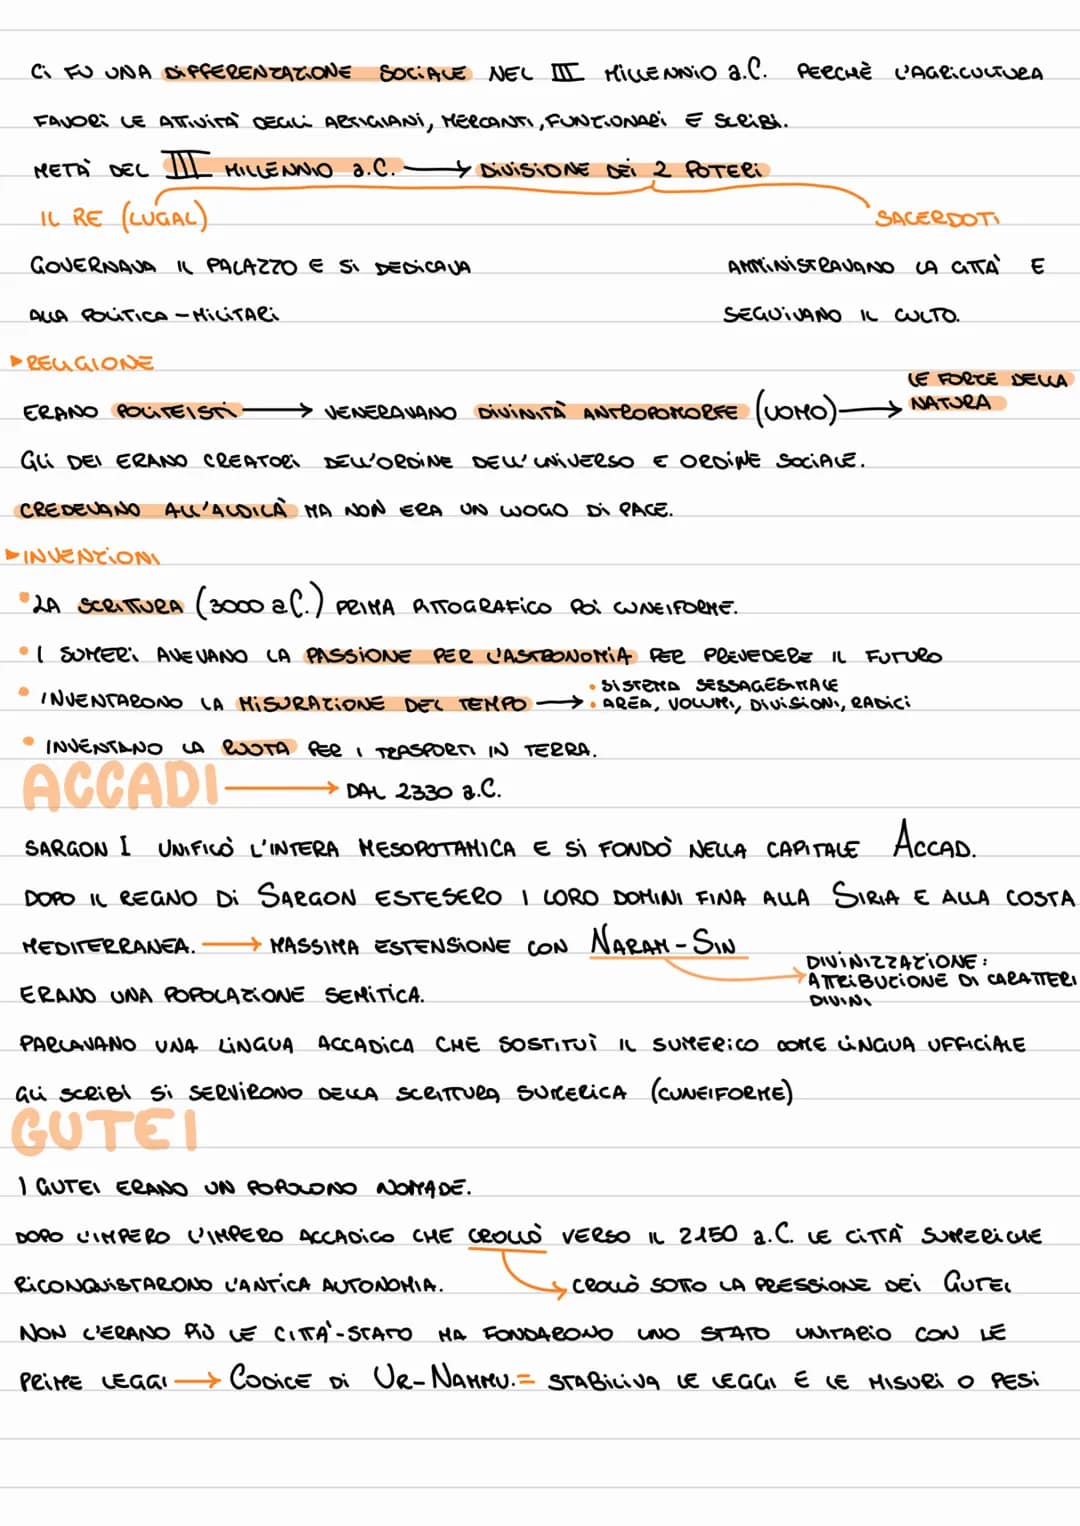 Ci FU UNA DIFFERENZAZIONE SOCIALE NEL III MILLENNIO a.C. PERCHÈ L'AGRICULTURA
FAVORì LE ATTIVITÀ DEGLI ARTIGIANI, MERCANTI, FUNZIONARI E SCRIBI.
METÀ DEL III MILLENNIO a.C. → DIVISIONE DEI 2 POTERI
IL RE (LUGAL) SACERDOTI
GOVERNAVA IL PALAZZO E SI DEDICAVA AMMINISTRAVANO LA CITTÀ E
ALLA POLITICA - MILITARI SEGUIVANO IL CULTO.
▶RELIGIONE
LE FORZE DELLA
ERANO POLITEISTI → VENERAVANO DIVINITÀ ANTROPOMORFE (UOMO) → NATURA
GLI DEI ERANO CREATORI DELL'ORDINE DELL'UNIVERSO E ORDINE SOCIALE.
CREDEVANO ALL'ALDILÀ MA NON ERA UN LUOGO DI PACE.
▶INVENZIONI
• LA SCRITTURA (3000 a.C.) PRIMA PITTOGRAFICO POI CUNEIFORME.
• I SUMERI AVEVANO LA PASSIONE PER L'ASTRONOMIA PER PREVEDERE IL FUTURO
• INVENTARONO LA MISURAZIONE DEL TEMPO → • SISTEMA SESSAGESIMALE
• AREA, VOLUMI, DIVISIONI, RADICI
• INVENTANO LA RUOTA PER I TRASPORTI IN TERRA.
ACCADI → DAL 2330 a.C.
SARGON I UNIFICÒ L'INTERA MESOPOTAMICA E SI FONDÒ NELLA CAPITALE ACCAD.
DOPO IL REGNO DI SARGON ESTESERO I LORO DOMINI FINA ALLA SIRIA E ALLA COSTA
MEDITERRANEA. → MASSIMA ESTENSIONE CON NARAM-SIN
DIVINIZZAZIONE:
ATTRIBUZIONE DI CARATTERI
DIVINI
ERANO UNA POPOLAZIONE SEMITICA.
PARLAVANO UNA LINGUA ACCADICA CHE SOSTITUÌ IL SUMERICO COME LINGUA UFFICIALE
GLI SCRIBI SI SERVIRONO DELLA SCRITTURA SUMERICA (CUNEIFORME)
GUTEI
I GUTEI ERANO UN POPOLONO NOMADE.
DOPO L'IMPERO L'IMPERO ACCADICO CHE CROLLÒ VERSO IL 2150 a.C. LE CITTÀ SUMERICHE
RICONQUISTARONO L'ANTICA AUTONOMIA. CROLLÒ SOTTO LA PRESSIONE DEI GUTEI
NON C'ERANO PIÙ LE CITTÀ-STATO MA FONDARONO UNO STATO UNITARIO CON LE
PRIME LEGGI → CODICE DI UR-NAMMU. = STABILIVA LE LEGGI E LE MISURI O PESI